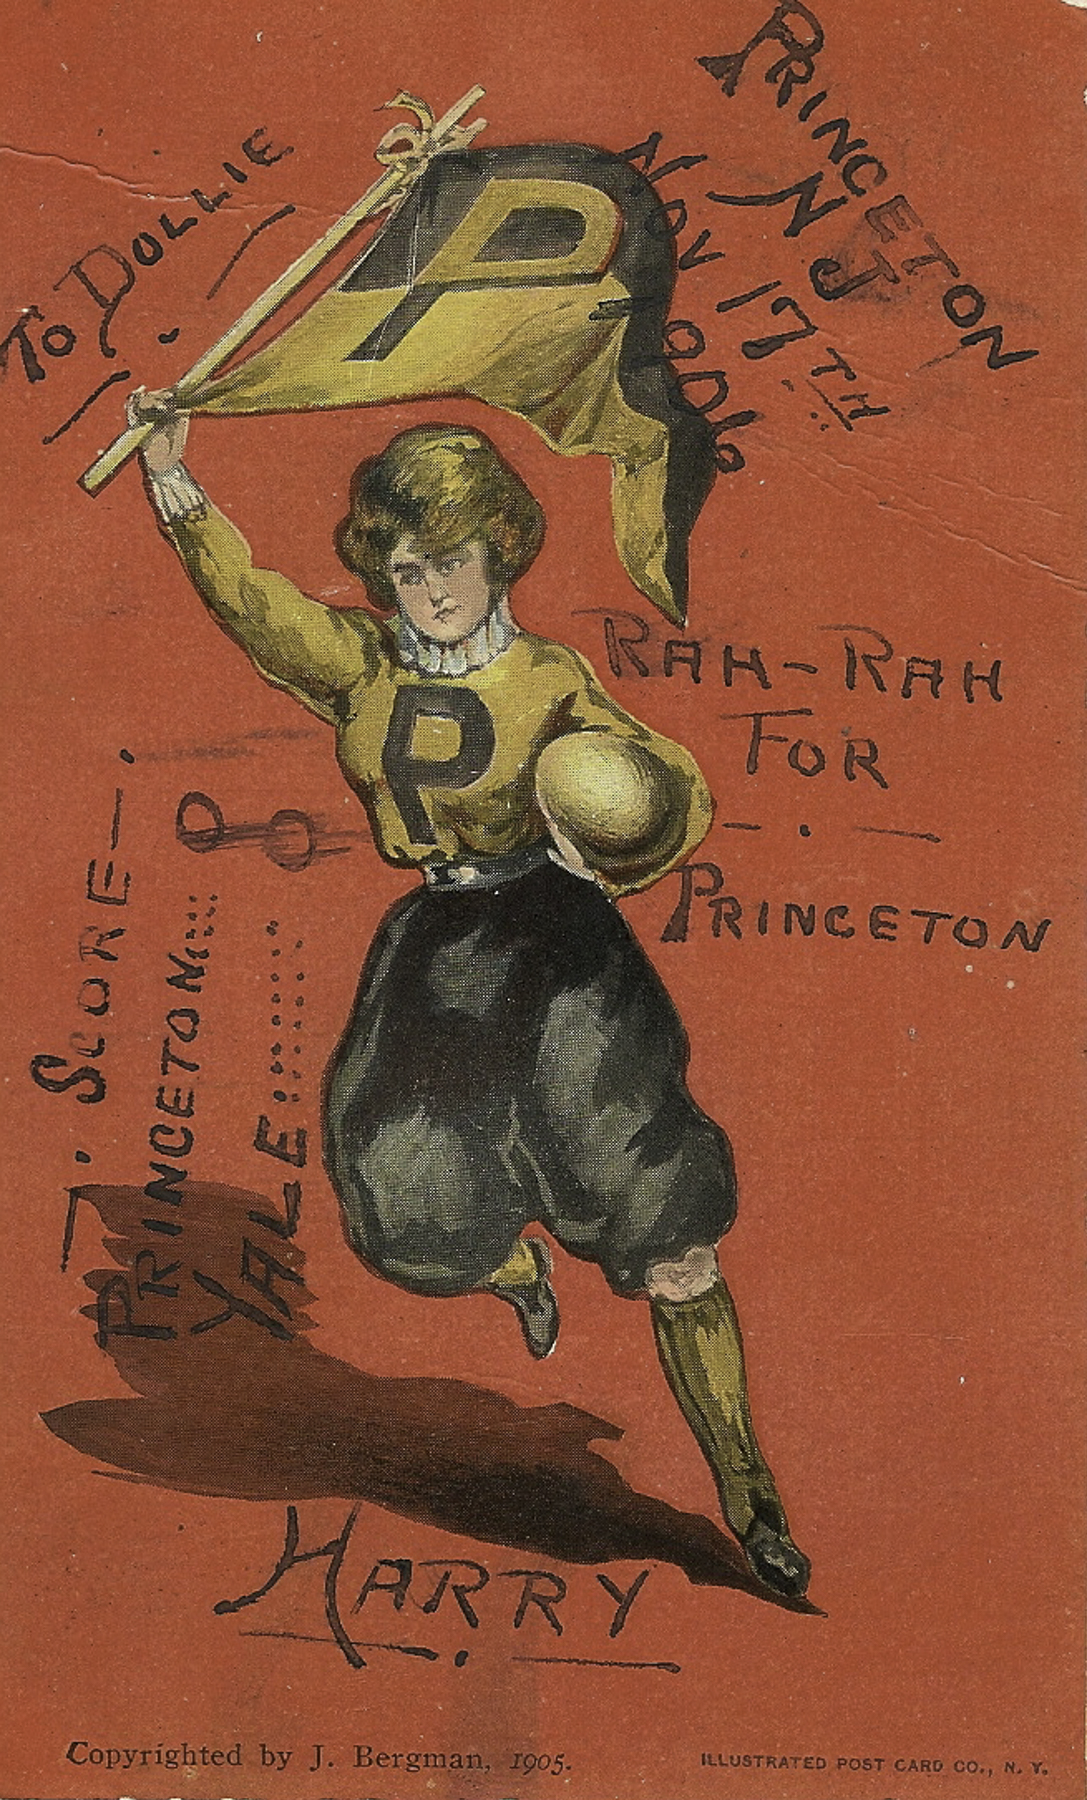 TO DOLLIE
PRINCETON
N J
NOV 17TH
1906
P
P
RAH-RAH
FOR
PRINCETON
SCORE-
PRINCETON::: 0
YALE:::::::: 0
HARRY
Copyrighted by J. Bergman, 1905.
ILLUSTRATED POST CARD CO., N. Y.